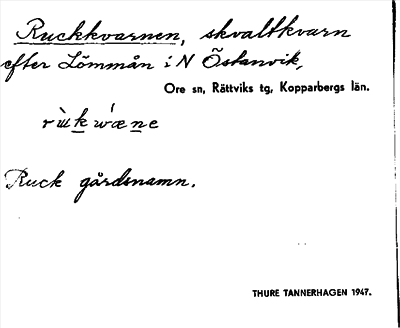 Ruckkvarnen, skvaltkvarn
efter Lömmån i N Östanvik,
Ore sn, Rättviks tg, Kopparbergs län.
Ruck gårdsnamn.
THURE TANNERHAGEN 1947.